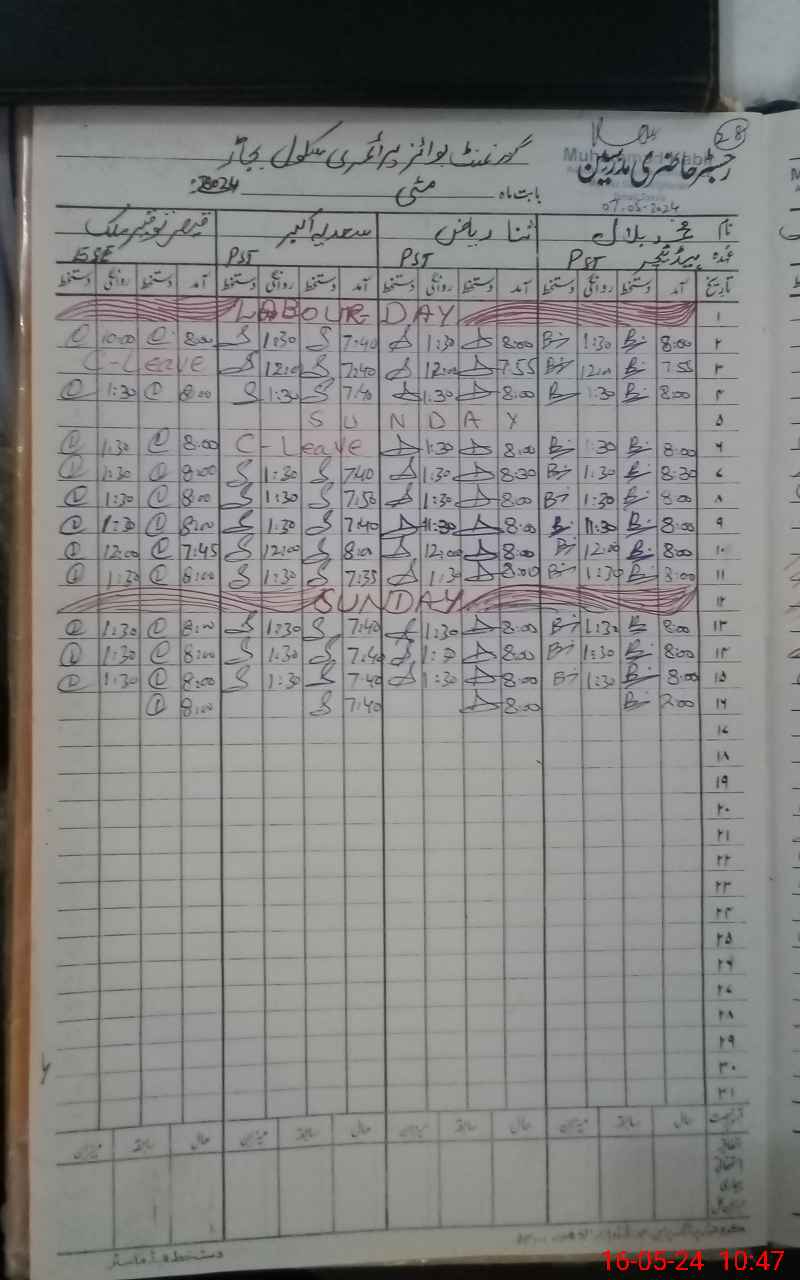 28
رجسٹر حاضری مدرسین گورنمنٹ بوائز پرائمری سکول بجاڑ
07-05-2024
بابت ماہ مئی 2024
نام بلال ثنا ریاض سعدیہ اکبر قیصر توقیر ملک
عہدہ ہیڈ ٹیچر PST PST PST ESE
تاریخ آمد دستخط روانگی دستخط آمد دستخط روانگی دستخط آمد دستخط روانگی دستخط آمد دستخط روانگی دستخط
۱ LABOUR DAY
۲ 8:00 1:30 8:00 1:30 7:40 1:30 8:00 10:00
۳ 7:55 12:00 7:55 12:00 7:40 12:00 C-Leave
۴ 8:00 1:30 8:00 1:30 7:40 1:30 8:00 1:30
۵ SUNDAY
۶ 8:00 1:30 8:00 1:30 C-Leave 8:00 1:30
۷ 8:30 1:30 8:30 1:30 7:40 1:30 8:00 1:30
۸ 8:00 1:30 8:00 1:30 7:50 1:30 8:00 1:30
۹ 8:00 11:30 8:00 11:30 7:40 1:30 8:00 1:30
۱۰ 8:00 12:00 8:00 12:00 8:00 12:00 7:45 12:00
۱۱ 8:00 1:30 8:00 1:30 7:35 1:30 8:00 1:30
۱۲ SUNDAY
۱۳ 8:00 1:30 8:00 1:30 7:40 1:30 8:00 1:30
۱۴ 8:00 1:30 8:00 1:30 7:40 1:30 8:00 1:30
۱۵ 8:00 1:30 8:00 1:30 7:40 1:30 8:00 1:30
۱۶ 8:00 7:40 8:00
۱۷
۱۸
۱۹
۲۰
۲۱
۲۲
۲۳
۲۴
۲۵
۲۶
۲۷
۲۸
۲۹
۳۰
۳۱
حال سابقہ میزان حال سابقہ میزان حال سابقہ میزان حال سابقہ میزان
16-05-24 10:47